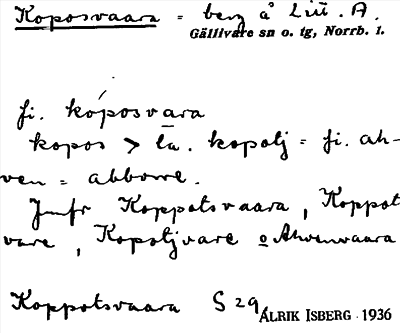 Koposvaara = berg å Lill. A.
Gällivare sn o. tg, Norrb. l.
fi. kóposvara
kopos > la. kopotj = fi. ah-
ven = abborre.
Jmfr Koppotsvaara, Koppot
vare, Kopotjvare o Ahvenvaara
Koppotsvaara S 29
ALRIK ISBERG 1936